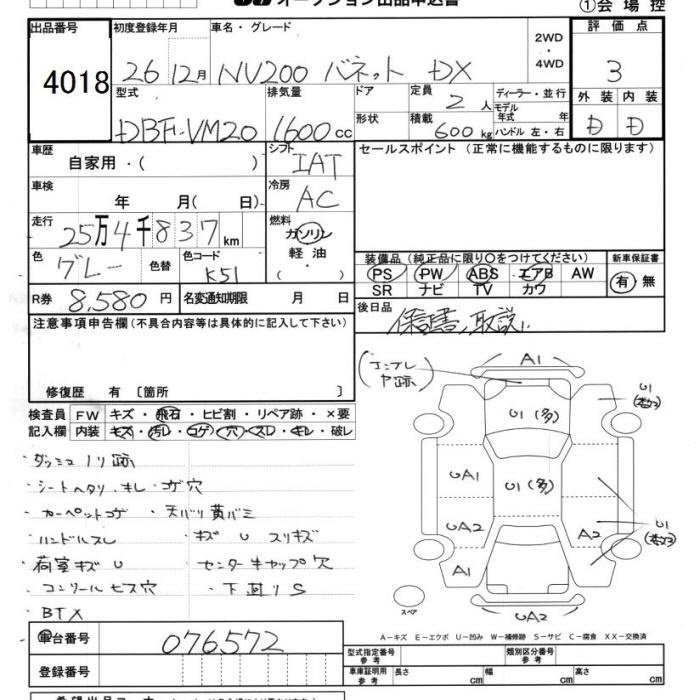 オークション出品申込書
①会場控
出品番号
4018
初度登録年月
26 12月
車名・グレード
NV200 バネット DX
2WD
・
4WD
評価点
3
型式
DBF-VM20
排気量
1600cc
ドア
形状
定員 2 人
積載 600kg
ディーラー・並行
モデル
年式 年
ハンドル 左・右
外装 内装
D D
車歴
自家用・( )
シフト
IAT
セールスポイント (正常に機能するものに限ります)
車検
年 月( 日)
冷房
AC
走行
25万4千837km
燃料
ガソリン
軽油
( ・ )
色
グレー
色替
色コード
K51
装備品(純正品に限り○をつけてください)
新車保証書
PS PW ABS エアB AW
SR ナビ TV カワ
有・無
R券 8,580 円
名変通知期限 月 日
後日品
保証書、取説
注意事項申告欄(不具合内容等は具体的に記入して下さい)
修復歴 有 〔箇所 〕
検査員
記入欄
FW キズ・飛石・ヒビ割・リペア跡・×要
内装 キズ・汚レ・コゲ・穴・スレ・キレ・破レ
・ダッシュノリ跡
・シートヘタリ・キレ・コゲ穴
・カーペットコゲ ・天バリ黄バミ
・ハンドルスレ ・キズ U スリキズ
・荷室キズU ・センターキャップ穴
・コンソールビス穴 ・下廻りS
・BTX
(エンブレ
ム跡)
A1
U1(多)
U1
(数ヶ)
UA1
U1(多)
UA2
A2
U1
(数ヶ)
A1
UA2
スペア
A-キズ E-エクボ U-凹み W-補修跡 S-サビ C-腐食 XX-交換済
車台番号
076572
登録番号
型式指定番号
参考
類別区分番号
参考
車庫証明用
参考
長さ cm 幅 cm 高さ cm